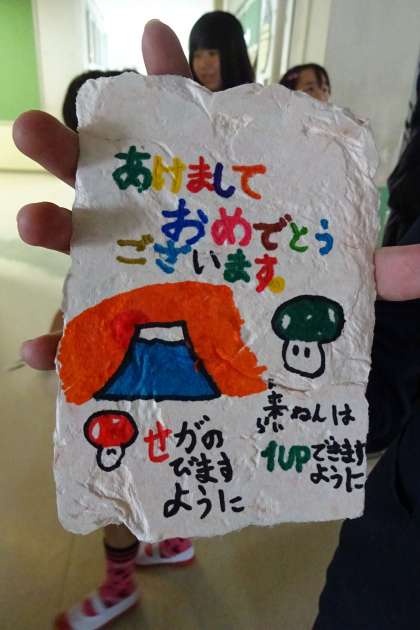 あけまして
おめでとう
ございます。
せがの
びます
ように
来ねんは
らい
1UPできます
ように